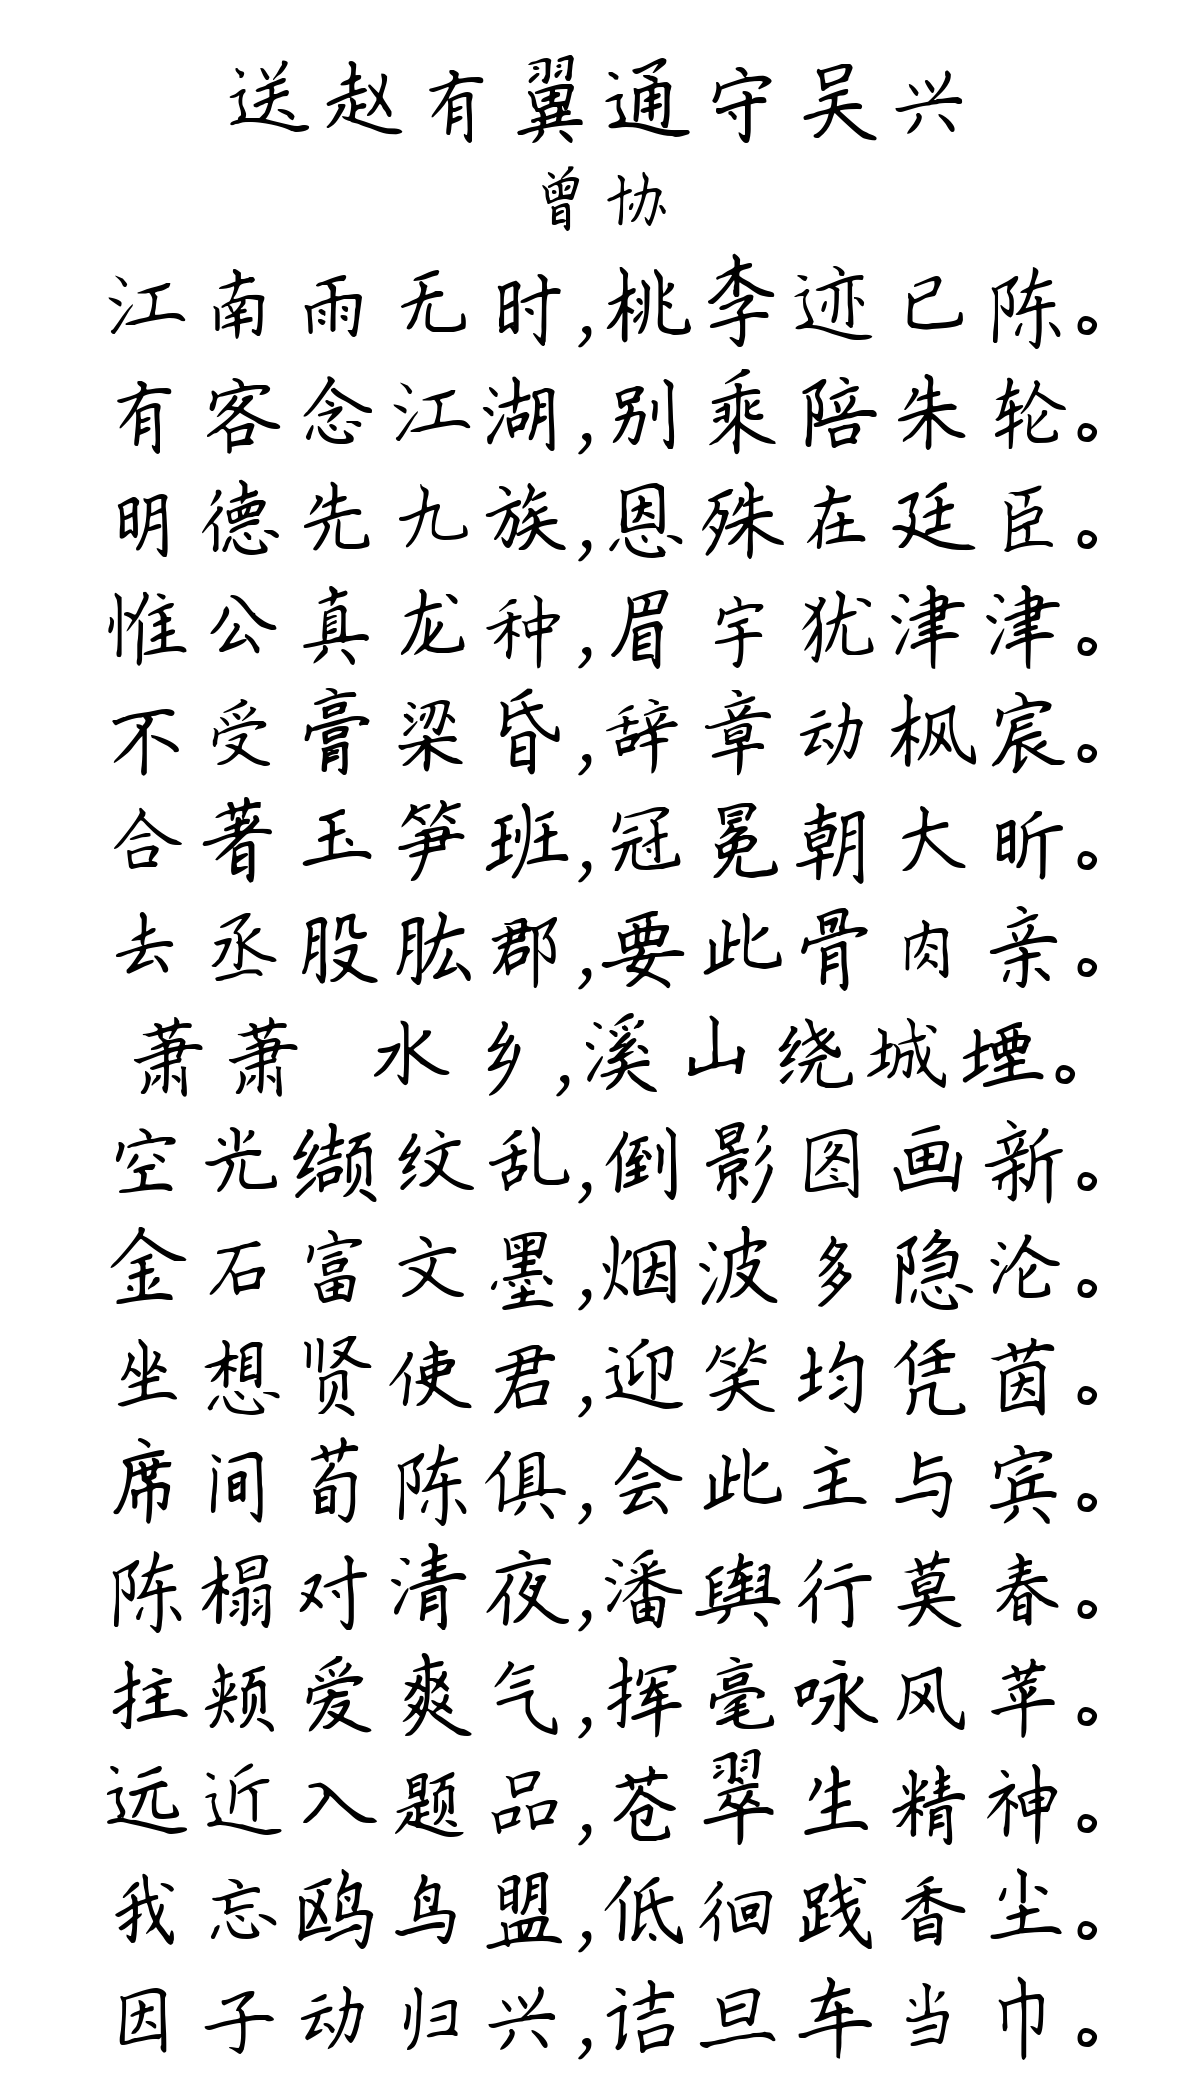 送赵有翼通守吴兴
曾协
江南雨无时,桃李迹已陈。
有客念江湖,别乘陪朱轮。
明德先九族,恩殊在廷臣。
惟公真龙种,眉宇犹津津。
不受膏梁昏,辞章动枫宸。
合著玉笋班,冠冕朝大昕。
去丞股肱郡,要此骨肉亲。
萧萧 水乡,溪山绕城堙。
空光缬纹乱,倒影图画新。
金石富文墨,烟波多隐沦。
坐想贤使君,迎笑均凭茵。
席间荀陈俱,会此主与宾。
陈榻对清夜,潘舆行莫春。
拄颊爱爽气,挥毫咏风苹。
远近入题品,苍翠生精神。
我忘鸥鸟盟,低徊践香尘。
因子动归兴,诘旦车当巾。